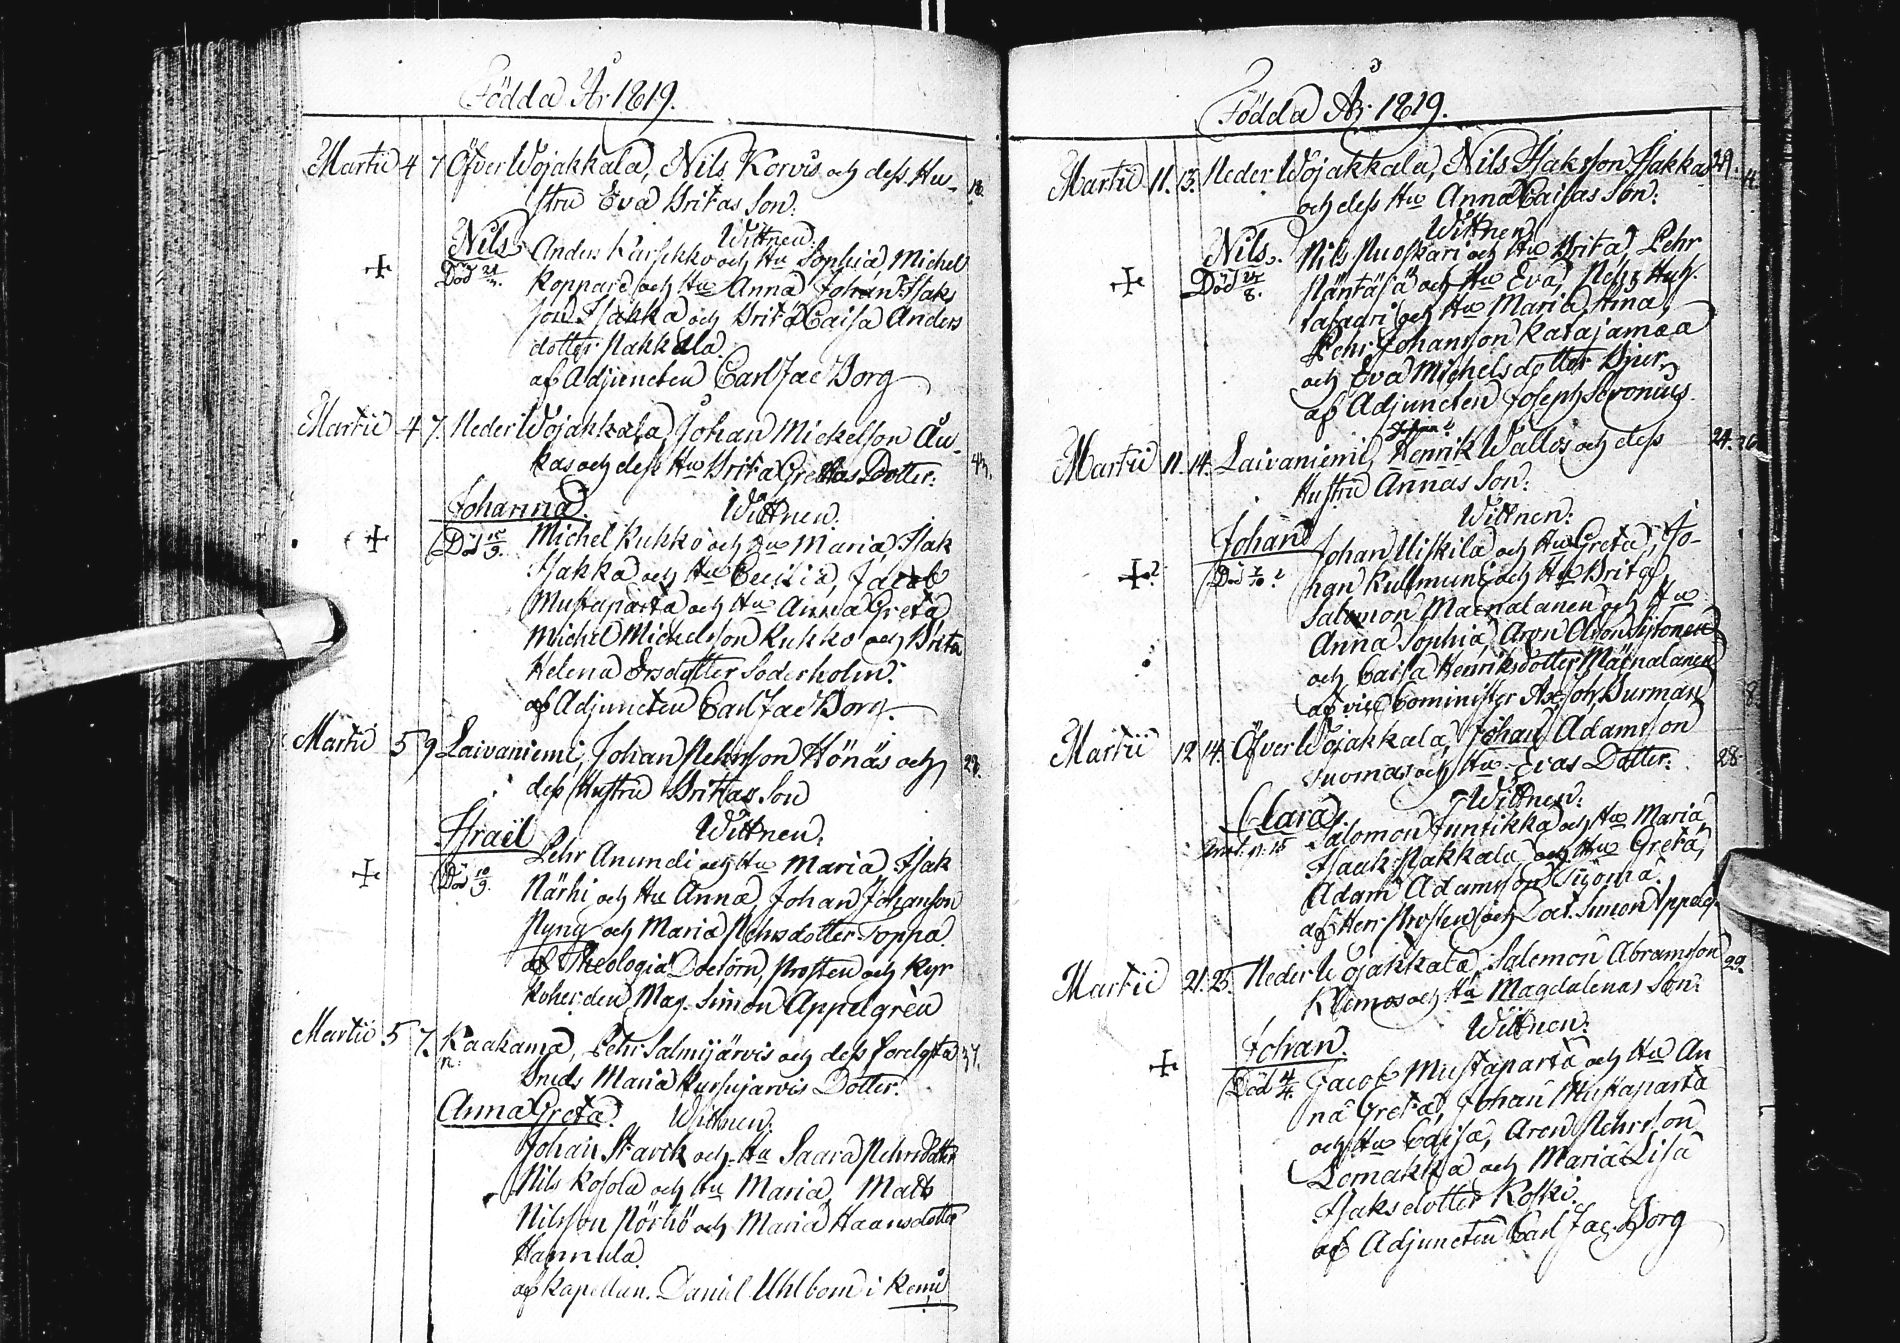 Födda År 1819.
Martii 4 7 Öfver Wojakkala, Nils Korvis och dess Hu-
stru Eva Britas Son.
Nils. Wittnen:
Anders Karsikko och Hu Sophia Michel
Död 21
Koppare och Hu Anna Johan Isaks
son Isakka och Brita Caisa Anders
dotter Nakkala.
af Adjuncten Carl Jac Borg
Martii 4 7. Neder Wojakkala, Johan Mickelson Au-
kas och dess Hu Brita Gretas Dotter. 43.
Johanna. Wittnen:
Död 15/9. Michel Kukko och Hu Maria, Isak
Isakka och Hu Cecilia, Jacob
Mustaparta och Hu Anna Greta
Michel Mickelsson Kukko och Brita
Helena Ersdotter Söderholm.
af Adjuncten Carl Jac Borg.
Martii 5 9 Laivaniemi, Johan Pehrson Hönäs och
dess Hustru Britas Son
Israil Wittnen:
Pehr Anundi och Hu Maria, Isak
Död 10/9. Närhi och Hu Anna, Johan Johanson
Nyny och Maria Pehrsdotter Toppa.
af Theologiæ Doctorn, Prosten och Kyr
koherden Mag. Simon Appelgren
Martii 5 7. Kaakama, Pehr Salmijärvis och dess förelgsta 37.
Maria Kursujärvis Dotter.
Anna Greta. Wittnen:
Johan Starck och Hu Saara Pehrsdotter
Nils Rosola och Hu Maria, Mats
Nilsson Pörhö och Maria Haansdotter
Hannula.
af Kapellan. Daniel Uhlbom i Kemi
Födda År 1819.
Martii 11. 13. Neder Wojakkala, Nils Isaksson Isakkas 29.
och dess Hu Anna Caisas Son.
Wittnen
Nils. Nils Ruoskari och Hu Brita, Pehr
Död 24/8. Näntäjä och Hu Eva,
och Hu Maria Anna,
Pehr Johanson Katajamaa
och Eva Michelsdotter Bjur,
af Adjuncten Joseph Heronius.
Johan?
Martii 11. 14. Laivaniemi, Henrik Wallos och dess 24. 26
Hustru Annas Son.
Wittnen:
Johan Johan Uiskila och Hu Greta, Jo-
? Död 7/10 ? han Kullmuni och Hu Brita,
Salomon Maenalanen och Hu
Anna Sophia, Aron Aronsson
och Caisa Henriksdotter Mäenalanen
af vice Cominister Joh Burman
Martii 12 14. Öfver Wojakkala, Johan Adamsson
Suomas och Hu Evas Dotter. 28
Clara. Wittnen:
Salomon Juntikka och Hu Maria,
Isaak Nakkala och Hu Greta,
Adam Adamsson Suoma.
af Herr Prosten och Doct. Simon Appelg.
Martii 21. 25. Neder Wojakkala, Salomon Abramsson 29.
Klemos och Hu Magdalenas Son.
Wittnen:
Johan. Jacob Mustaparta och Hu An
Död 4/4. na Greta, Johan Mustaparta
och Hu Caisa, Aron Pehrson
Lomakka och Maria Lisa
Isaksdotter Koski.
af Adjuncten Carl Jac. Borg